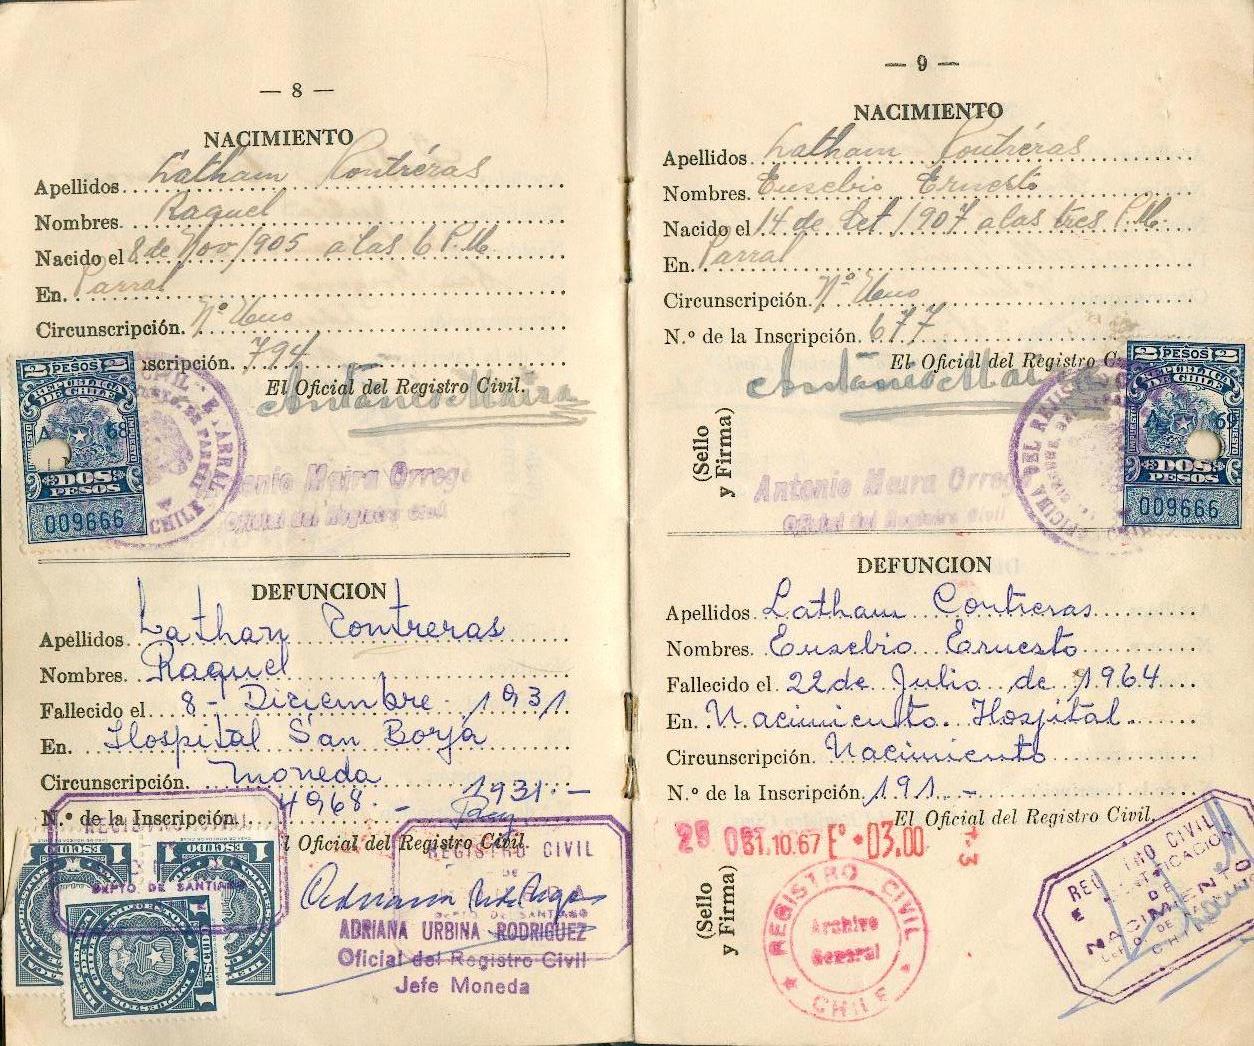 — 8 —
NACIMIENTO
Apellidos Latham Contréras
Nombres Raquel
Nacido el 8 de Nov/905 a las 6 P.M
En Parral
Circunscripción Nº Uno
scripción. 794
El Oficial del Registro Civil.
Antonio Maira
2 PESOS 2
REPUBLICA DE CHILE
68
DOS PESOS
009666
PARRAL
CHILE
onio Maira Orreg
Oficial del Registro Civil
DEFUNCION
Apellidos Lathan Contreras
Nombres Raquel
Fallecido el 8 - Diciembre - 1931
En Hospital San Borja
Circunscripción. Moneda
N.º de la Inscripción. 4968 - 1931 -
l Oficial del Registro Civil.
REGISTRO CIVIL
DEPTO DE SANTIAGO
1 ESCUDO 1
REGISTRO CIVIL
DE
DEPTO DE SANTIAGO
ADRIANA URBINA RODRIGUEZ
Oficial del Registro Civil
Jefe Moneda
— 9 —
NACIMIENTO
Apellidos Latham Contréras
Nombres Eusebio Ernesto
Nacido el 14 de Set/907 a las tres P.M.
En Parral
Circunscripción. Nº Uno
N.º de la Inscripción. 677
El Oficial del Registro C
Antonio Mai
(Sello y Firma)
Antonio Maira Orreg
Oficial del Registro Civil
OFICINA DEL REGIS
2 PESOS 2
REPUBLICA DE CHILE
69
DOS PESOS
009666
DEFUNCION
Apellidos Latham Contreras
Nombres Eusebio Ernesto
Fallecido el 22 de Julio de 1964
En Nacimiento Hospital
Circunscripción Nacimiento
N.º de la Inscripción. 191 -
El Oficial del Registro Civil.
31.10.67 Eº 03.00
(Sello y Firma)
REGISTRO CIVIL
Archivo
General
CHILE
CIVIL
DE
NACIMIENTO